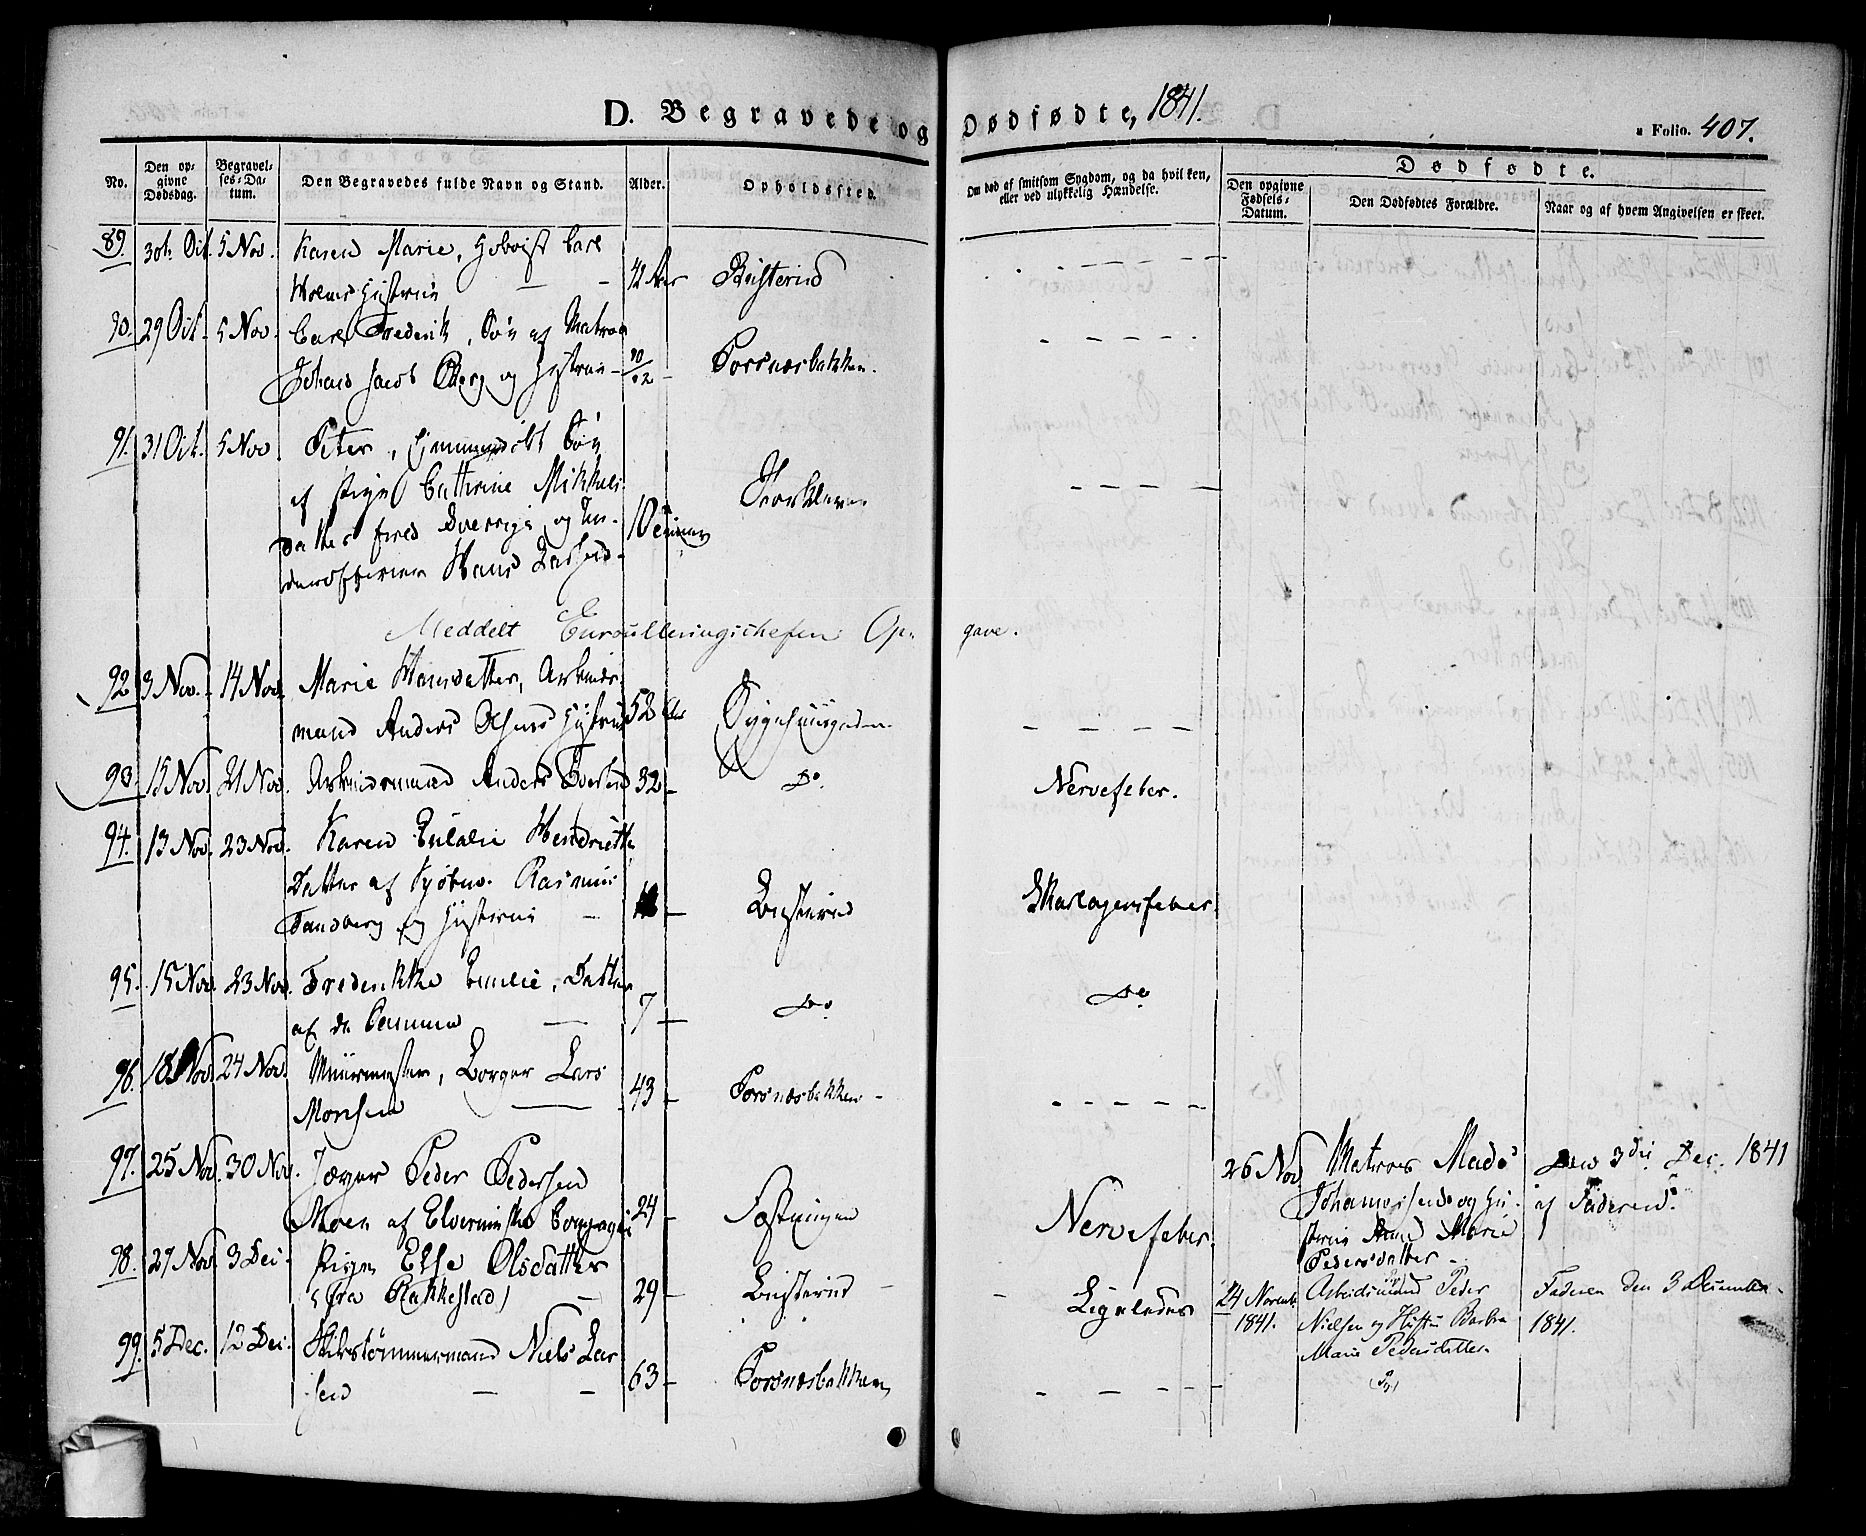 D. Begravede og Dødfødte, 1841.
Folio. 407.
No.
Den opgivne Dødsdag.
Begravelses-Datum.
Den Begravedes fulde Navn og Stand.
Alder.
Opholdssted.
Om død af smitsom Sygdom, og da hvilken, eller ved ulykkelig Hændelse.
Dødfødte.
Den opgivne Fødsels-Datum.
Den Dødfødtes Forældre.
Naar og af hvem Angivelsen er skeet.
89. 5 Nov. Karen Marie, Carl
42 Aar
90. 29 Oct. 5 Nov. Carl Frederik, Søn af Matros
Johans Jacob Berg og Hustrue 10/12 Torsnæsbakken.
91. 31 Oct. 5 Nov Peter, Søn
af Pigen Cathrine Mikkels
datter fra Sverrige og Un-
derofficeer Hans
Meddelt Enroulleringschefen Opgave.
92 3 Nov. 14 Nov. Marie Hansdatter, Arbeids-
mand Anders Olsens Hustrue 52 Sygehuusgaden
93. 15 Nov. 21 Nov. Arbeidsmand Anders 32 Do. Nervefeber.
94. 13 Nov. 23 Nov. Karen Eulalie Hendriette
Datter af Kjøbm. Rasmus
Tandberg og Hustrue Skarlagensfeber.
95. 15 Nov. 23 Nov. Fredrikke Emilie, Datter
af de Samme 7 Do Do
96. 18 Nov. 24 Nov. Muurmester, Borger Lars
Monsen 43 Torsnæsbakken
97. 25 Nov. 30 Nov. Jæger Peder Pedersen
Moen af Elverumske Compagni 24 Fæstningen Nervefeber.
26 Nov Matros Mads
Johannessen og Hu-
strue Anne Marie
Pedersdatter
Den 3die Dec. 1841
af Faderen.
98. 27 Nov 3 Dec. Pigen Else Olsdatter
(fra Rakkestad) 29
24 Novemb. 1841. Arbeidsmand Peder
Nielsen og Hustru
Marie Pedersdatter
Faderen den 3 December
1841.
99. 5 Dec. 12 Dec. Niels Lar
sen 63 Torsnæsbakken